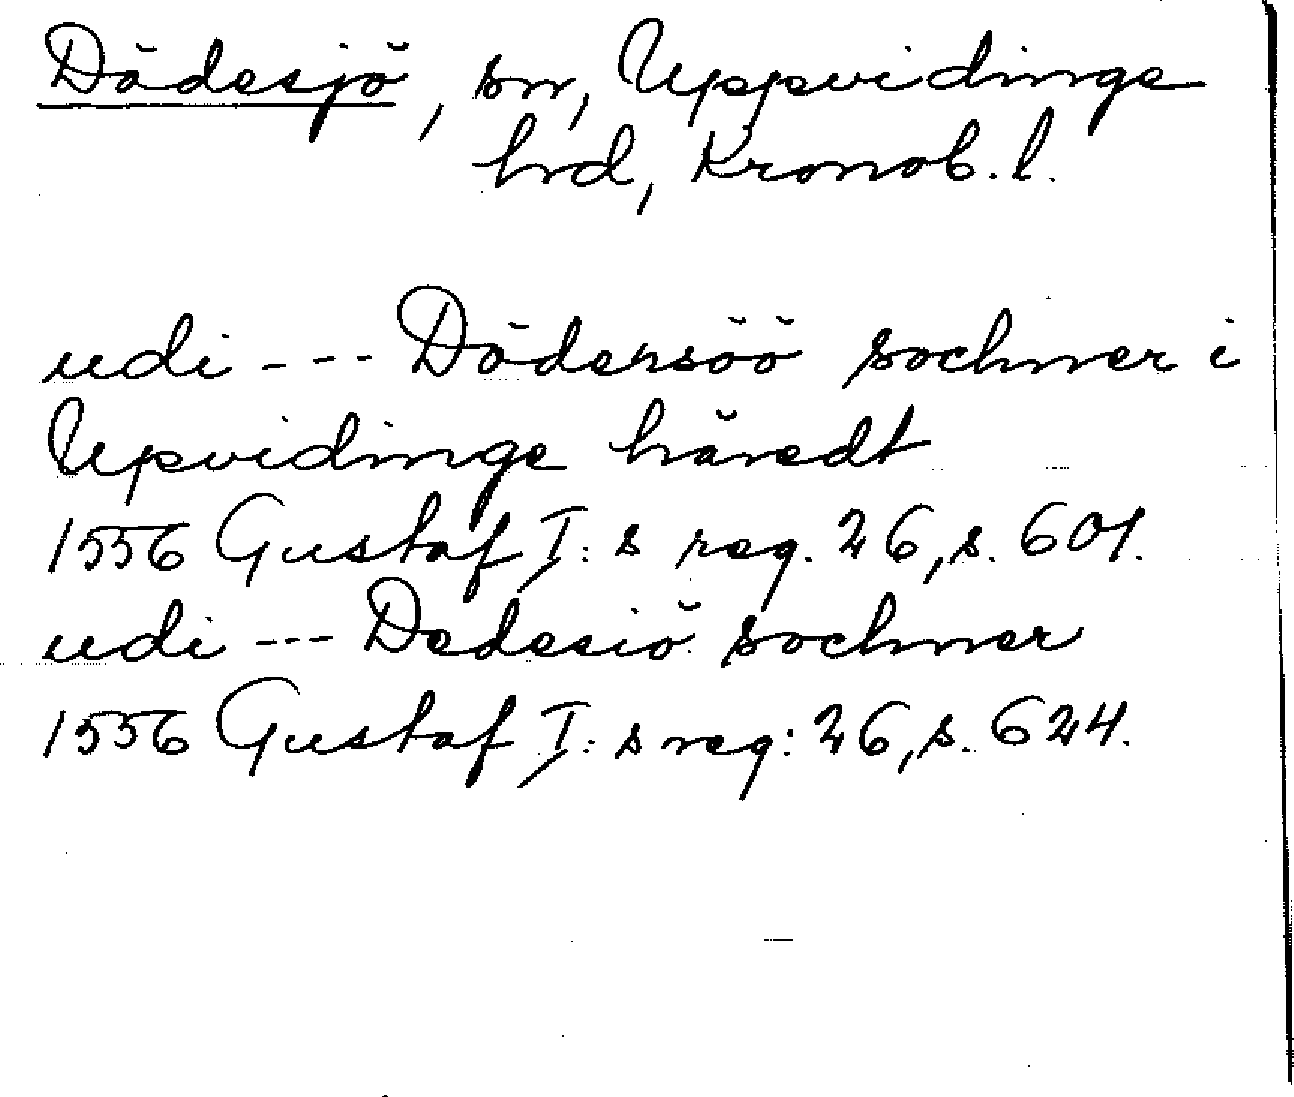 Dädesjö, sn, Uppvidinge
hrd, Kronob. l.
udi --- Dödersöö sochner i
Upvidinge häredt
1556 Gustaf I: s reg. 26, s. 601.
udi --- Dedesiö sochner
1556 Gustaf I: s reg: 26, s. 624.